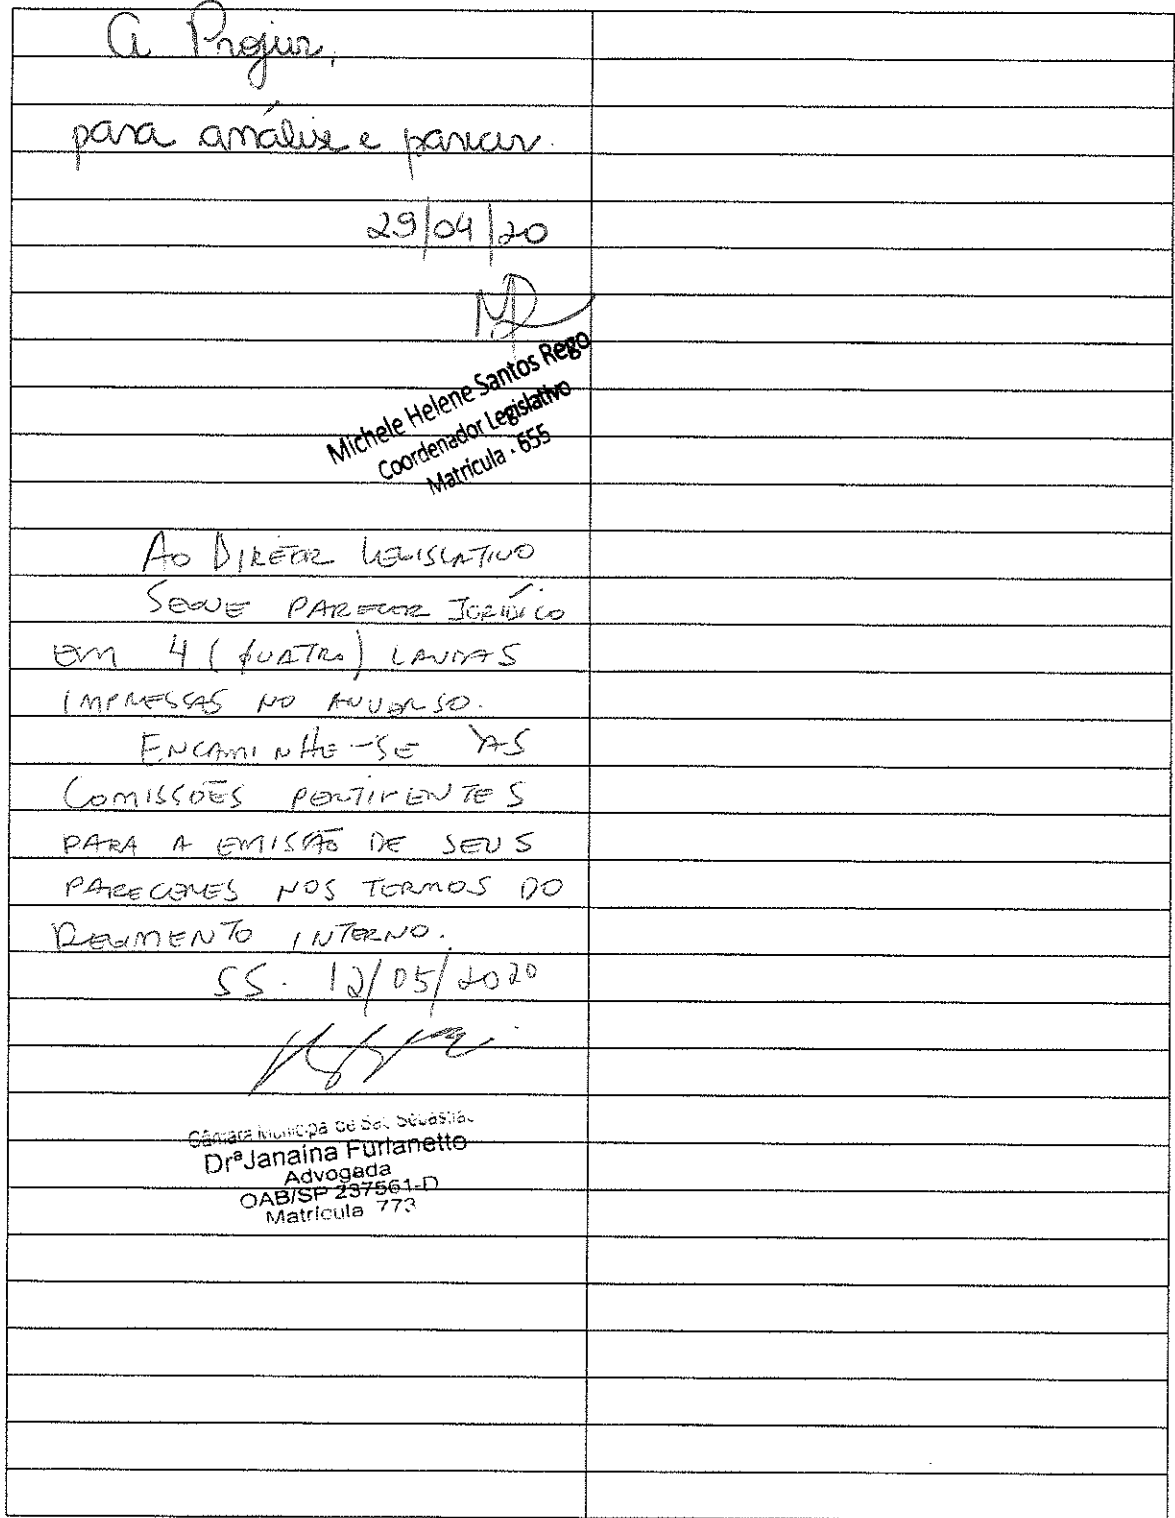 A Projur,
para análise e parecer.
29/04/20
Michele Helene Santos Rego
Coordenador Legislativo
Matrícula - 655
AO DIRETOR LEGISLATIVO
SEGUE PARECER JURÍDICO
EM 4 (QUATRO) LAUDAS
IMPRESSAS NO ANVERSO.
ENCAMINHE-SE ÀS
COMISSÕES PERTINENTES
PARA A EMISSÃO DE SEUS
PARECERES NOS TERMOS DO
REGIMENTO INTERNO.
SS. 12/05/2020
Câmara Municipal de São Sebastião
Drª Janaina Furlanetto
Advogada
OAB/SP 237561-D
Matrícula 773